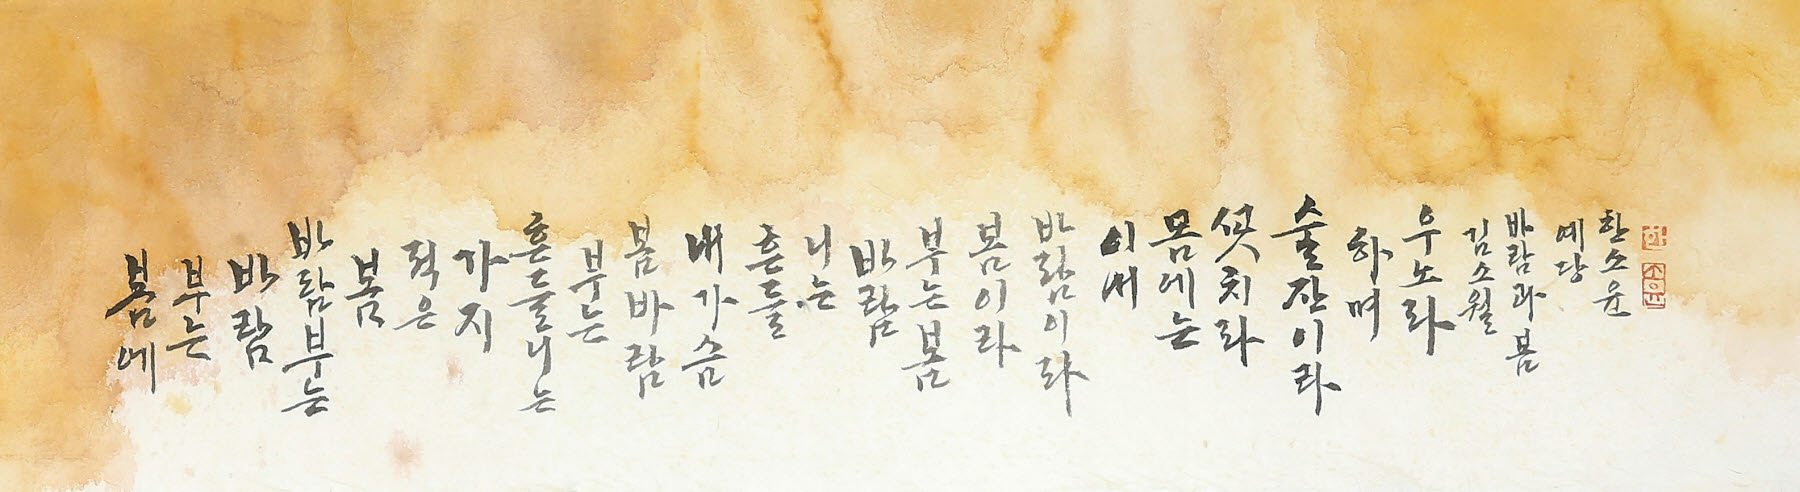 봄에
부는
바람
바람부는
봄
적은
가지
흔들니는
부는
봄바람
내가슴
흔들
니는
바람
부는봄
봄이라
바람이라
이내
몸에는
ᄭᅩᆺ치라
술잔이라
하며
우노라
김소월
바람과 봄
예당
한소윤
한
소윤